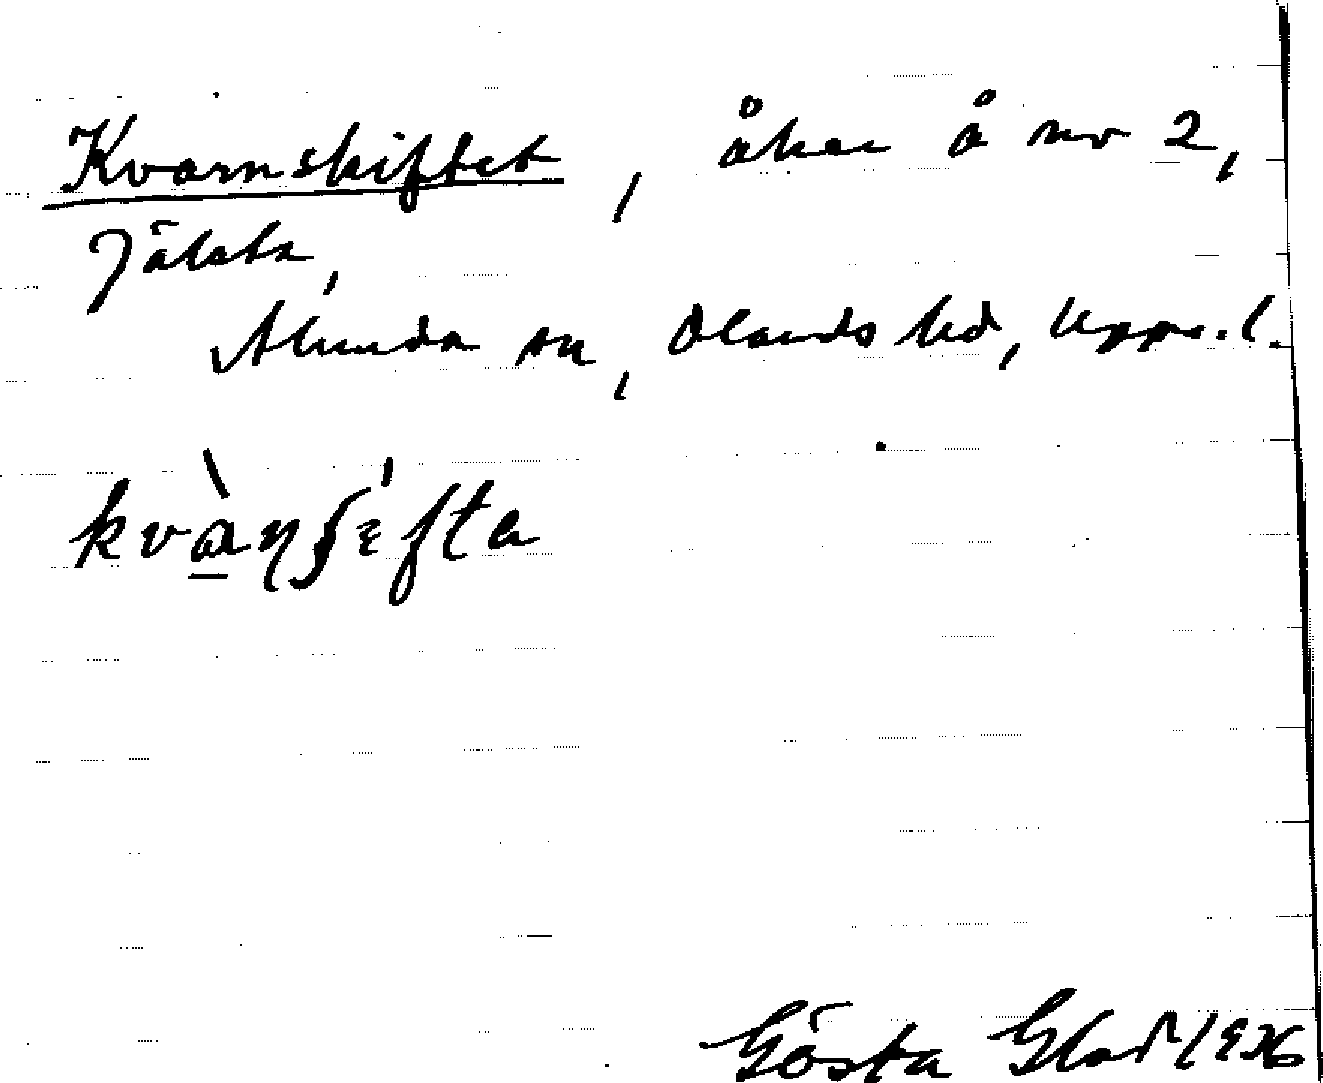 Kvarnskiftet, åker å nr 2,
Jälsta,
Alunda sn, Olands hd, Upps.l.
kvànʃɛ́fta
Gösta Glad 1936